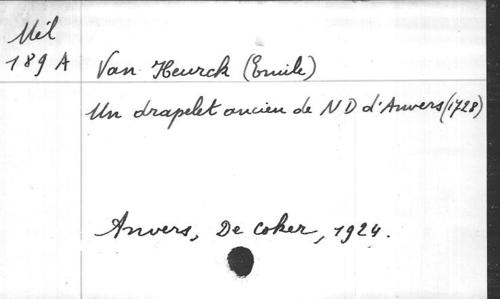 Mél
189 A
Van Heurck (Emile)
Un drapelet ancien de N D d'Anvers (1728)
Anvers, De Coker, 1924.